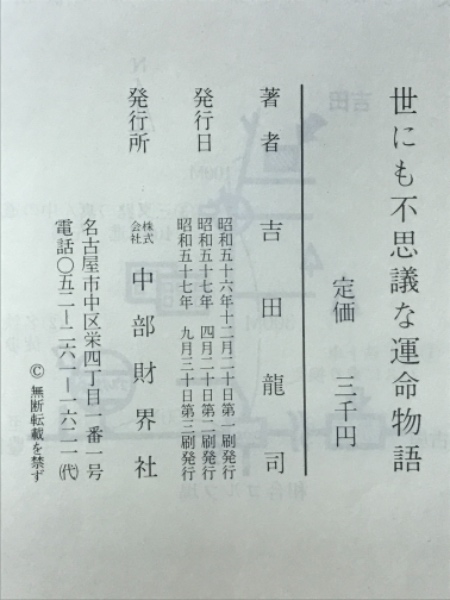 世にも不思議な運命物語
定価　三千円
著者　吉田龍司
発行日　昭和五十六年十二月二十日第一刷発行
昭和五十七年　四月二十日第二刷発行
昭和五十七年　九月三十日第三刷発行
発行所　株式会社　中部財界社
名古屋市中区栄四丁目一番一号
電話〇五二―二六一―一六二一㈹
© 無断転載を禁ず